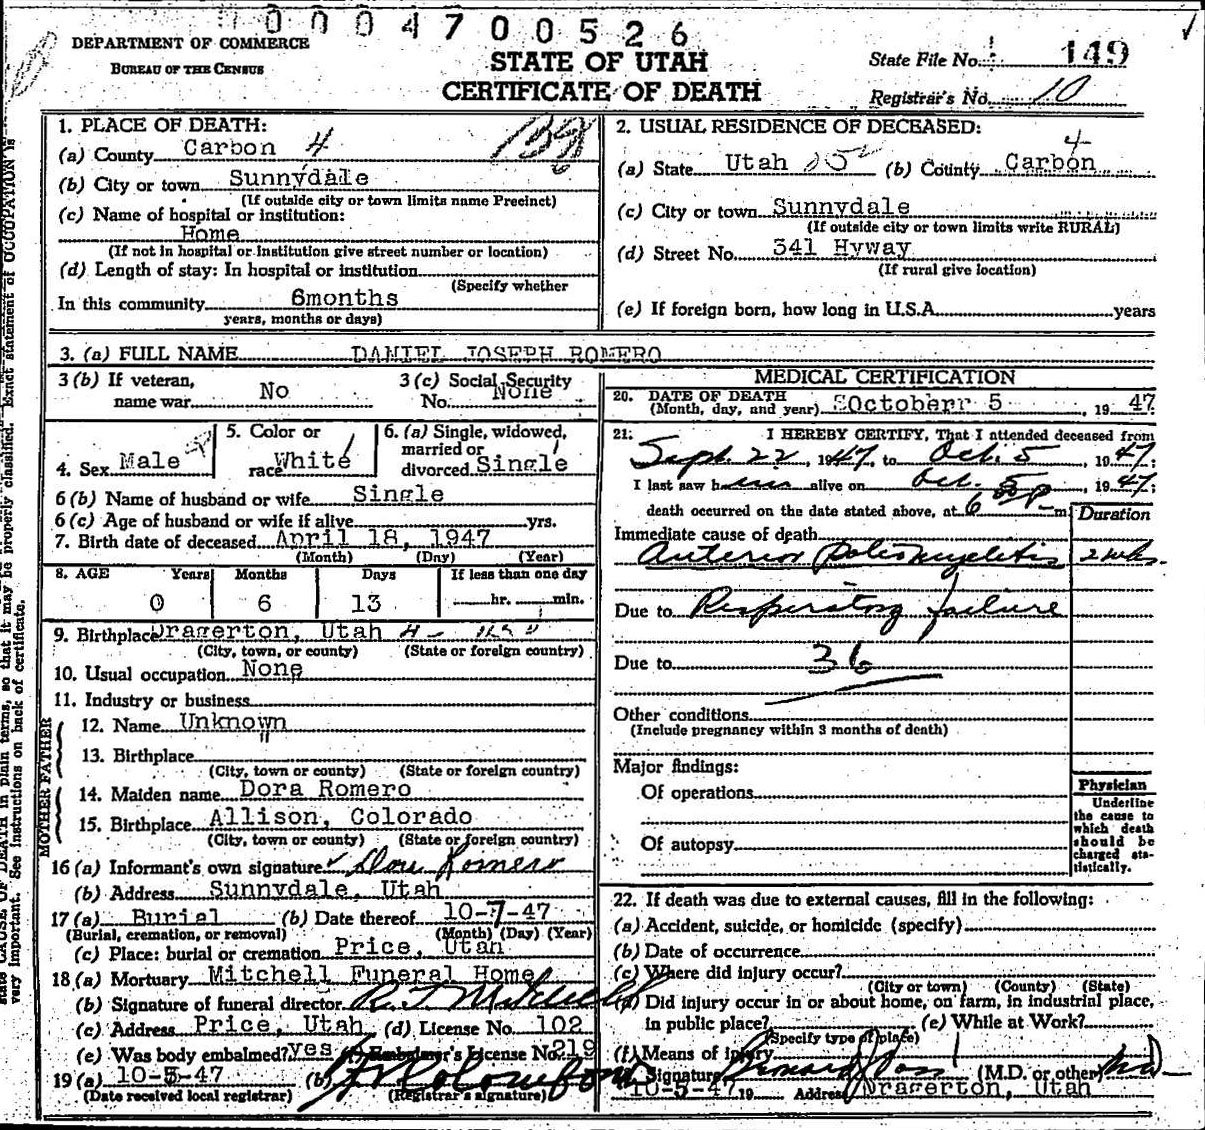 0004700526
DEPARTMENT OF COMMERCE
BUREAU OF THE CENSUS
STATE OF UTAH
CERTIFICATE OF DEATH
State File No. 149
Registrar's No. 10
1. PLACE OF DEATH:
(a) County Carbon 4
(b) City or town Sunnydale
(If outside city or town limits name Precinct)
(c) Name of hospital or institution:
Home
(If not in hospital or institution give street number or location)
(d) Length of stay: In hospital or institution
(Specify whether
In this community 6months
years, months or days)
2. USUAL RESIDENCE OF DECEASED:
4
(a) State Utah (b) County Carbon
(c) City or town Sunnydale
(If outside city or town limits write RURAL)
(d) Street No. 341 Hyway
(If rural give location)
(e) If foreign born, how long in U.S.A. years
3. (a) FULL NAME DANIEL JOSEPH ROMERO
3 (b) If veteran, name war No
3 (c) Social Security No. None
4. Sex Male
5. Color or race White
6. (a) Single, widowed, married or divorced Single
6 (b) Name of husband or wife Single
6 (c) Age of husband or wife if alive yrs.
7. Birth date of deceased April 18, 1947
(Month) (Day) (Year)
8. AGE Years Months Days If less than one day
0 6 13 hr. min.
9. Birthplace Dragerton, Utah 4
(City, town, or county) (State or foreign country)
10. Usual occupation None
11. Industry or business
FATHER
12. Name Unknown
13. Birthplace "
(City, town or county) (State or foreign country)
MOTHER
14. Maiden name Dora Romero
15. Birthplace Allison, Colorado
(City, town or county) (State or foreign country)
16 (a) Informant's own signature Dora Romero
(b) Address Sunnydale, Utah
17 (a) Burial (b) Date thereof 10-7-47
(Burial, cremation, or removal) (Month) (Day) (Year)
(c) Place: burial or cremation Price, Utah
18 (a) Mortuary Mitchell Funeral Home
(b) Signature of funeral director R. J. Mitchell
(c) Address Price, Utah (d) License No. 102
(e) Was body embalmed? yes (f) Embalmer's License No. 219
19 (a) 10-5-47 (b)
(Date received local registrar) (Registrar's signature)
MEDICAL CERTIFICATION
20. DATE OF DEATH
(Month, day, and year) Octoberr 5, 1947
21. I HEREBY CERTIFY, That I attended deceased from
Sept. 22, 1947, to Oct. 5, 1947;
I last saw him alive on Oct. 5, 1947;
death occurred on the date stated above, at 6 P m.
Duration
Immediate cause of death
Anterior Poliomyelitis 2 wks.
Due to Respiratory failure
Due to 36
Other conditions
(Include pregnancy within 3 months of death)
Major findings:
Of operations
Of autopsy
Physician
Underline
the cause to
which death
should be
charged sta-
tistically.
22. If death was due to external causes, fill in the following:
(a) Accident, suicide, or homicide (specify)
(b) Date of occurrence
(c) Where did injury occur?
(City or town) (County) (State)
(d) Did injury occur in or about home, on farm, in industrial place,
in public place? (e) While at Work?
(Specify type of place)
(f) Means of injury
Signature (M.D. or other) MD
10-5-47 19 Address Dragerton, Utah